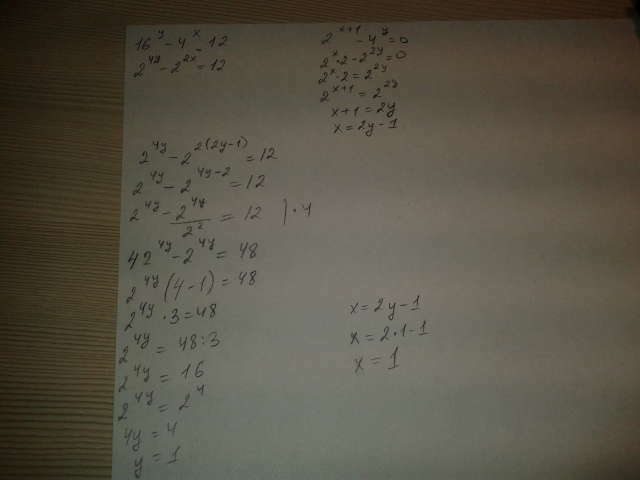 16^y - 4^x = 12
2^{4y} - 2^{2x} = 12
2^{x+1} - 4^y = 0
2^x · 2 - 2^{2y} = 0
2^x · 2 = 2^{2y}
2^{x+1} = 2^{2y}
x+1 = 2y
x = 2y - 1
2^{4y} - 2^{2(2y-1)} = 12
2^{4y} - 2^{4y-2} = 12
2^{4y} - \frac{2^{4y}}{2^2} = 12 | · 4
4 2^{4y} - 2^{4y} = 48
2^{4y} (4 - 1) = 48
2^{4y} · 3 = 48
2^{4y} = 48 : 3
2^{4y} = 16
2^{4y} = 2^4
4y = 4
y = 1
x = 2y - 1
x = 2 · 1 - 1
x = 1